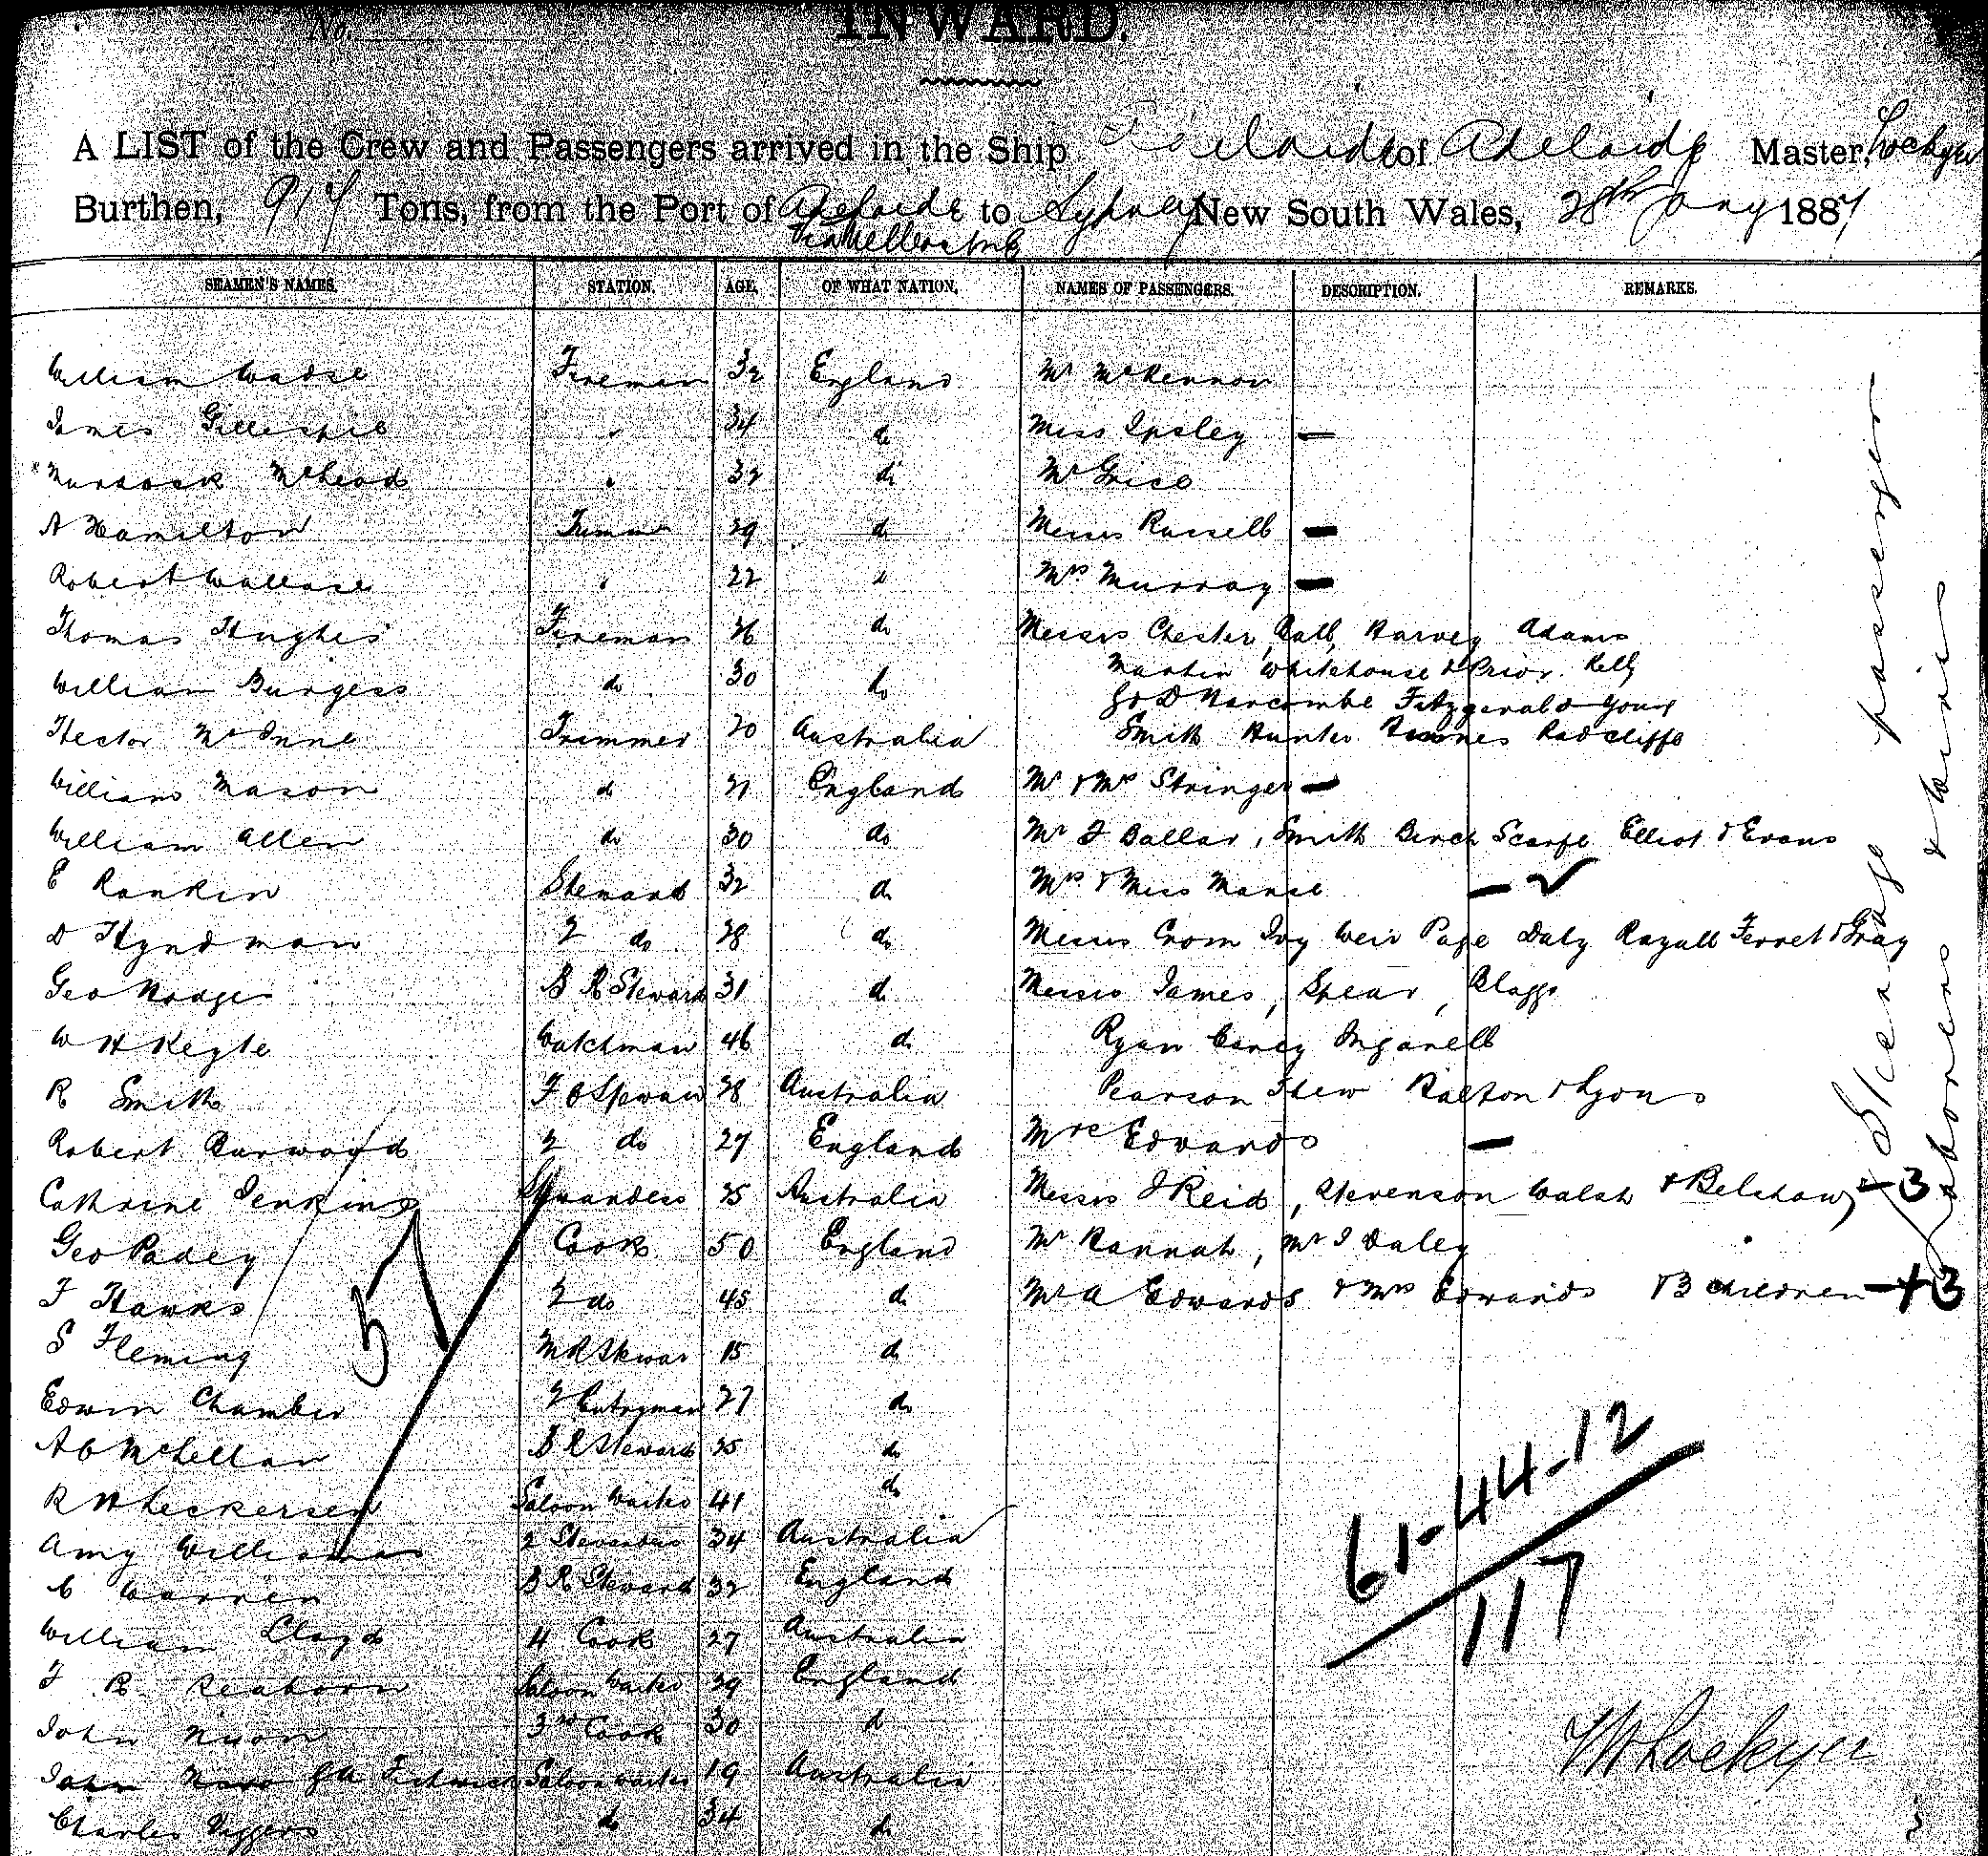 No.
INWARD.
A LIST of the Crew and Passengers arrived in the Ship Adelaide of Adelaide Master, Lockyer
Burthen, 914 Tons, from the Port of Adelaide to Sydney New South Wales, 28th Jany 1887
via Melbourne
SEAMEN'S NAMES. STATION. AGE. OF WHAT NATION. NAMES OF PASSENGERS. DESCRIPTION. REMARKS.
William Fireman 32 England Mr McKennon
James Gillespie " 34 do Miss Ipsley —
Murdock McLeod " 32 do Mr Grice
A Hamilton 29 do Messrs Russell —
Robert Wallace " 22 " Mrs Murray —
Thomas Hughes Fireman 26 do Messrs Chester, Ball, Harvey Adams
Martin Whitehouse & Prior Kelly
William Burgess do 30 do
Narcombe Fitzgerald Young
Hector McInnes Trimmer 20 Australia Smith Hunter Radcliffe
William Mason do 21 England Mr & Mrs Stringer —
William Allen do 30 do Mr J Ballar, Smith Birch Scarfe Elliot & Evans
E Rankin Steward 32 do Mrs & Miss Manse —
D Hyndman 2 do 28 do Messrs Crom Ivy Weir Page Daly Ferret & Gray
Geo Steward 31 do Messrs James, Spear, Blagg
W H Kegte Watchman 46 do Ryan Carey Inganell
R Smith 28 Australia Pearson Thew Ralton & Lyons
Robert Burwood 2 do 27 England Mrs Edwards —
Cathrine Jenkins Stewardess 25 Australia Messrs J Reid, Stevenson Walsh & Belshaw — 3
Geo Padey Cook 50 England Mr Hannah, Mr J Daley
F Hawks 2 do 45 do Mr A Edwards & Mrs Edwards & 3 children — + 3
S Fleming M R Stewar 15 do
Edwin Chamber 2 Pantryman 27 do
A C McLellan B R Steward 25 do
R H Leckersen Saloon Waiter 41 do
Amy Williams 2 Stewardess 34 Australia
C Warren B R Steward 32 England
William Lloyd 4 Cook 27 Australia
F R Reaborn Saloon Waiter 29 England
John Nixon 3rd Cook 30 do
John Saloon Waiter 19 Australia
Charles Viggers do 34 do
Steerage passengers
5
61-44-12
117
Lockyer